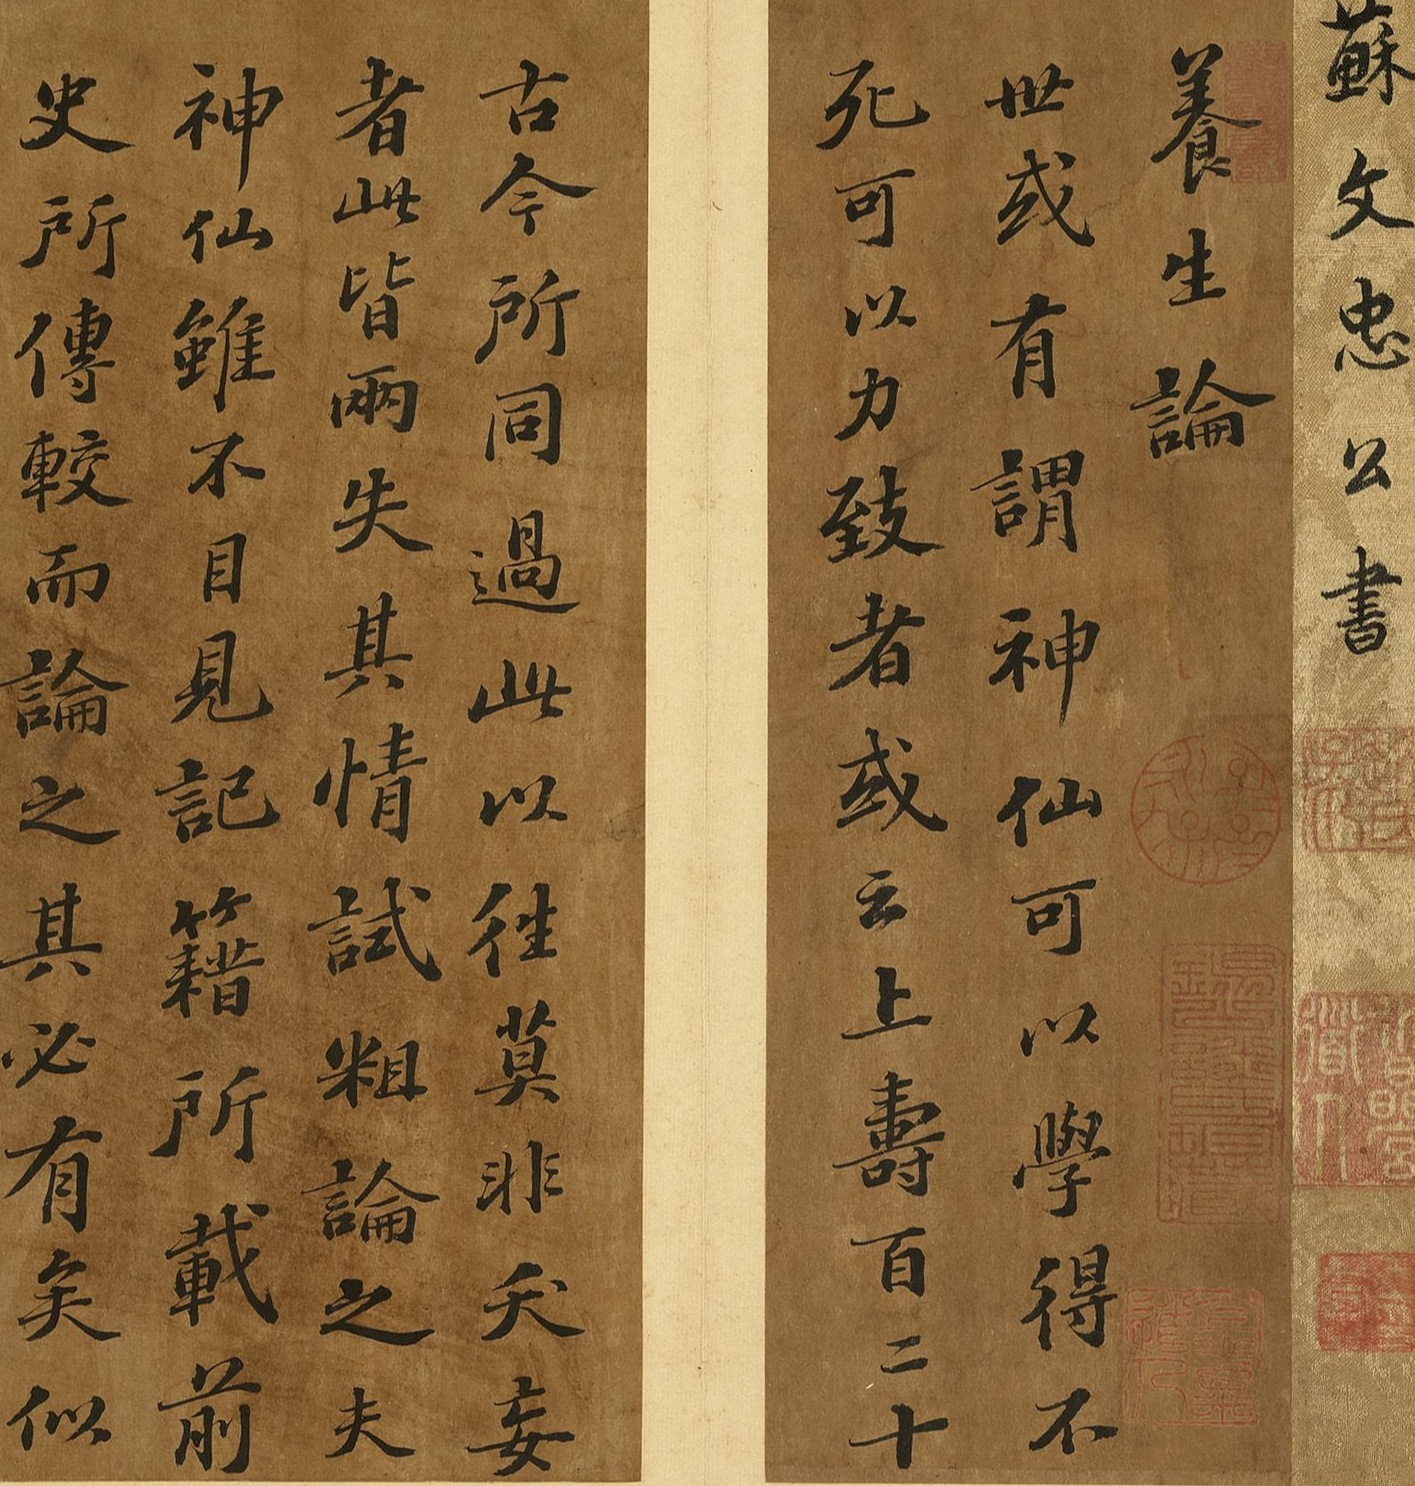 蘇文忠公書
養生論
世或有謂神仙可以學得不
死可以力致者或云上壽百二十
古今所同過此以往莫非夭妄
者此皆兩失其情試粗論之夫
神仙雖不目見記籍所載前
史所傳較而論之其必有矣似